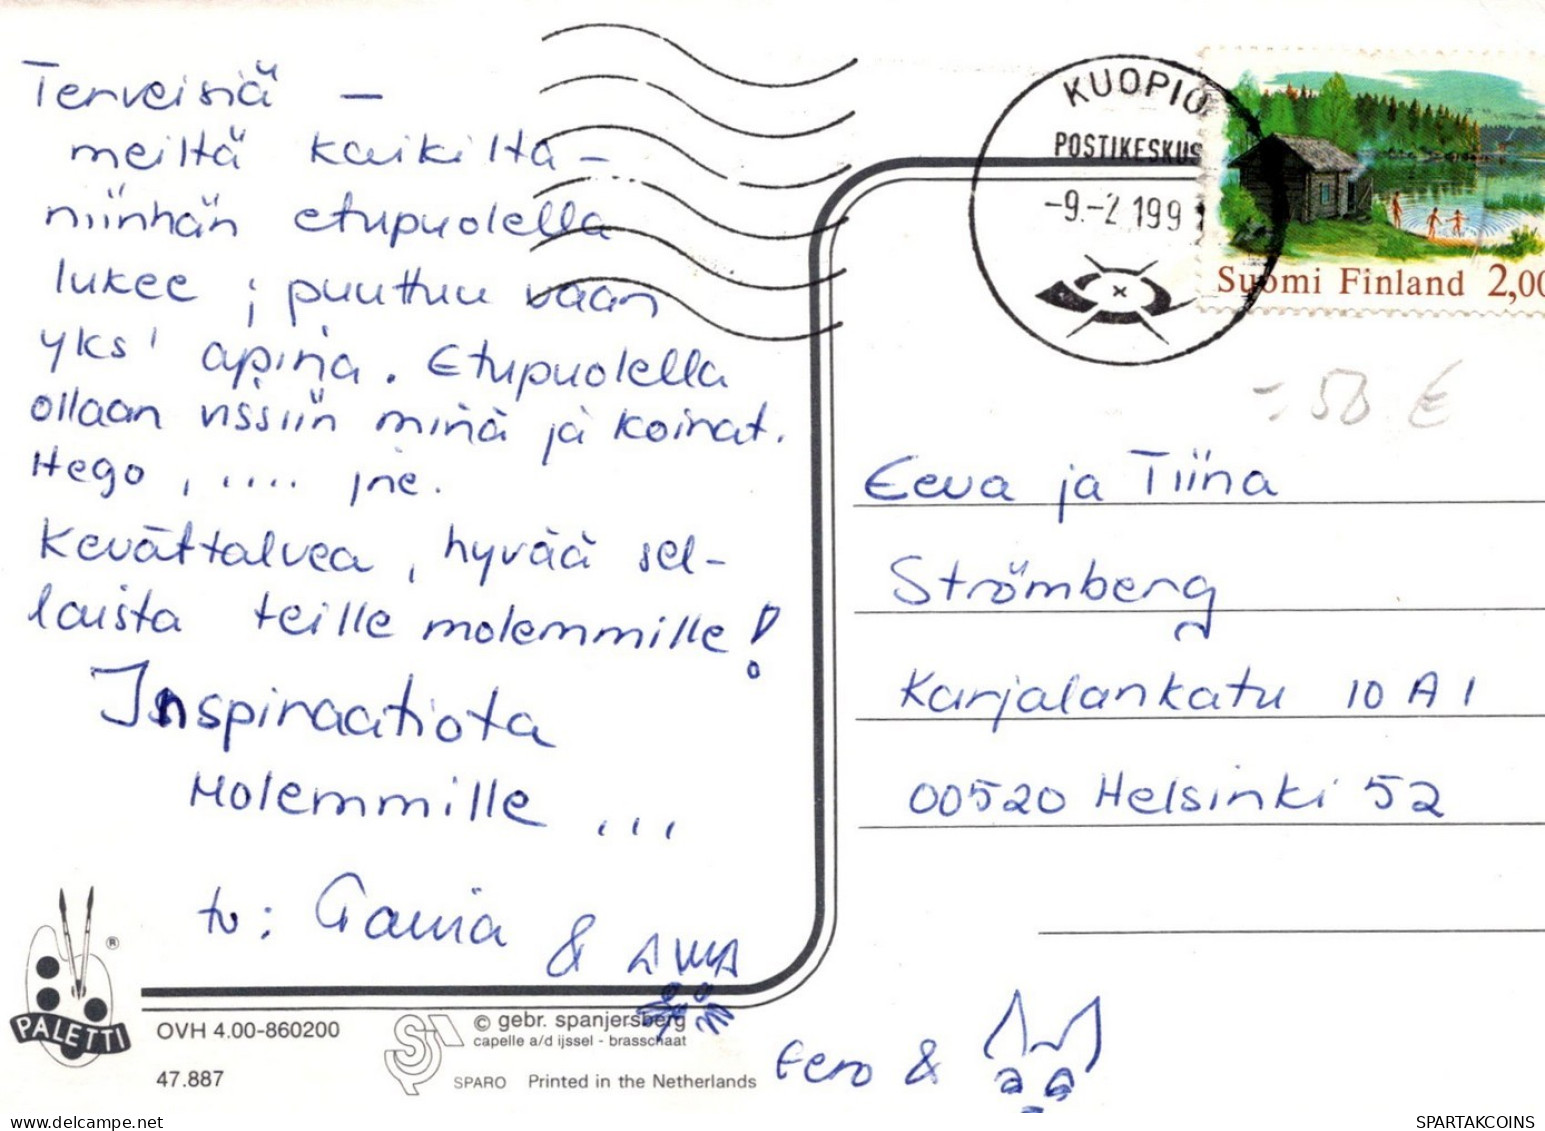 Terveisiä –
meiltä kaikilta –
niinhän etupuolella
lukee ; puuttuu vaan
yks' apina. Etupuolella
ollaan vissiin minä ja koirat.
Hego, .... jne.
Kevättalvea, hyvää sel-
laista teille molemmille!
Inspiraatiota
Molemmille ...
tv:
&
Eero &
KUOPIO
POSTIKESKUS
-9.-2.199
Suomi Finland 2,00
-.50 €
Eeva ja Tiina
Strömberg
Karjalankatu 10 A 1
00520 Helsinki 52
PALETTI ®
OVH 4.00-860200
47.887
© gebr. spanjersberg
capelle a/d ijssel - brasschaat
SPARO Printed in the Netherlands
SPARTAKCOINS